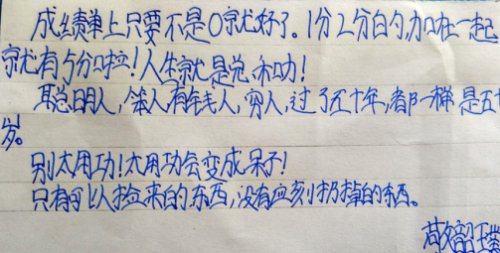 成绩单上只要不是0就好了。1分2分的,加在一起
就有5分啦!人生就是总和呦!
聪明人,笨人有钱人,穷人,过了五十年,都一样是五十
岁。
别太用功!太用功会变成呆子!
只有可以捡来的东西,没有应刻扔掉的东西。